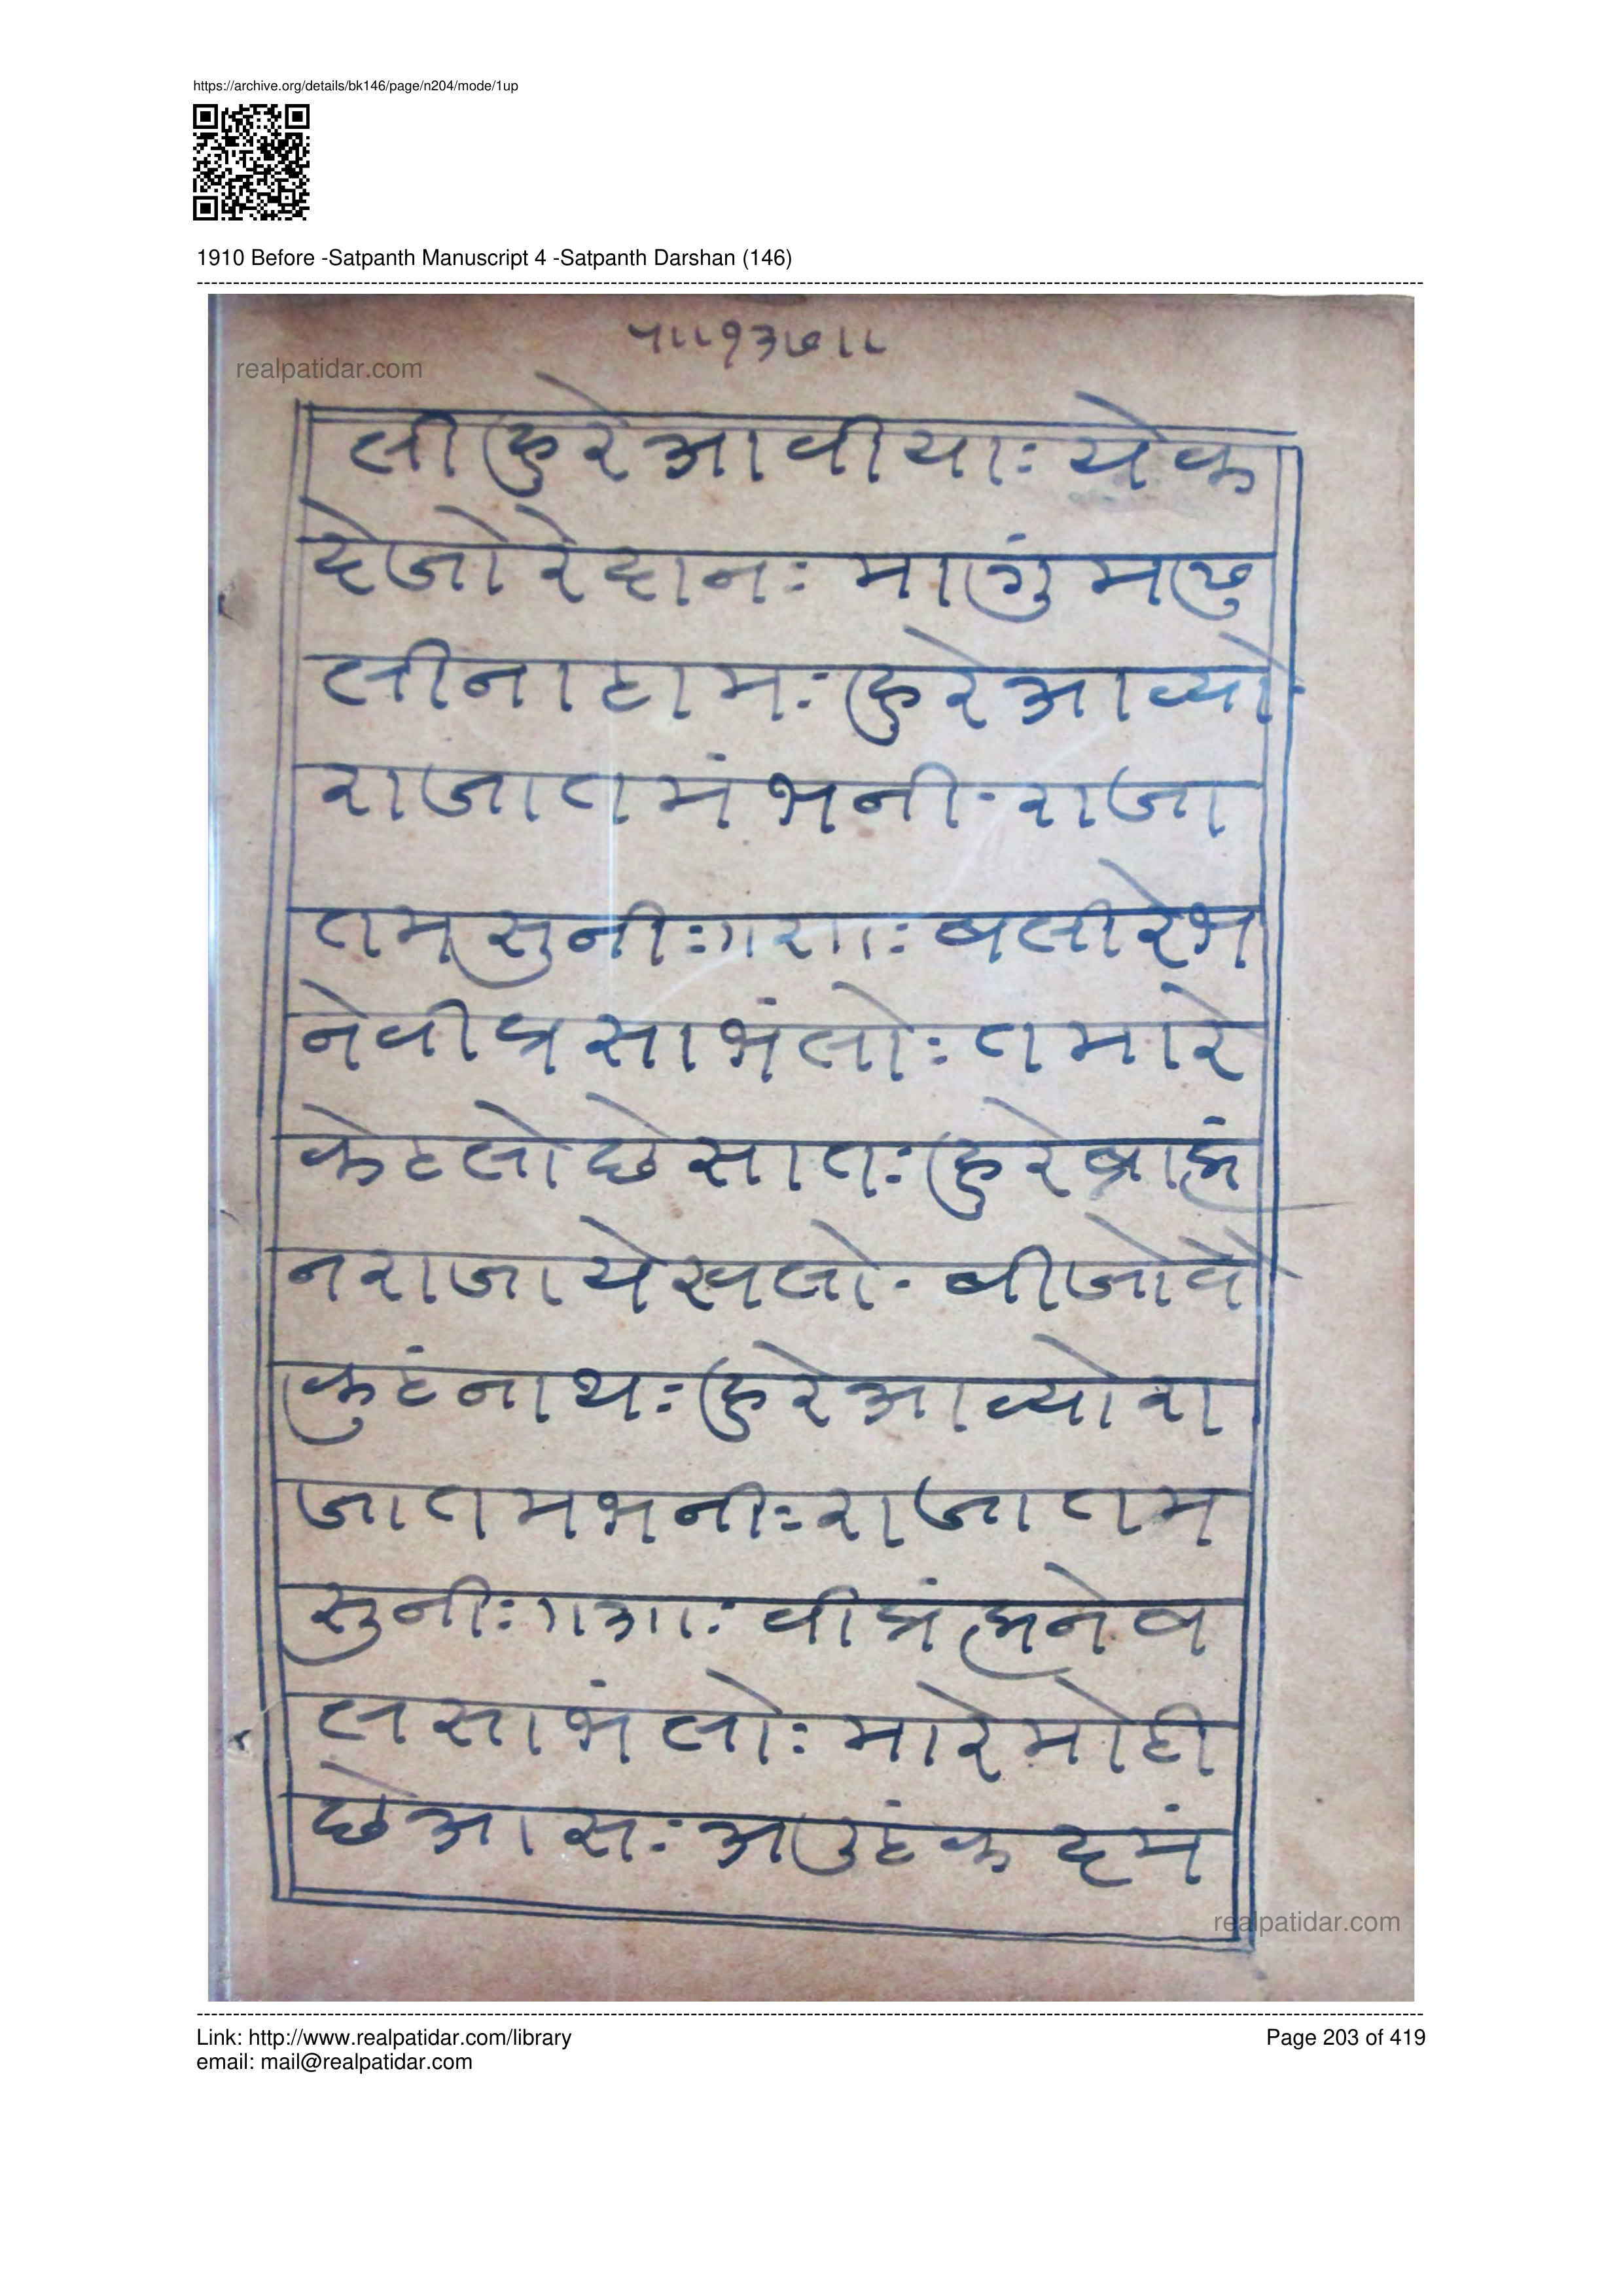 https://archive.org/details/bk146/page/n204/mode/1up
1910 Before -Satpanth Manuscript 4 -Satpanth Darshan (146)
५॥१३७॥
realpatidar.com
ली हुरे आवीयाः येक
देजो रे दानः मागुं मछु
लीना ठामः हुरे आव्यो
राजा तमं भनी॰ राजा
तम सुनीः।१२।ः बली रे भ
ने वीप्र साभंलोः तमारे
केटलो छे सातः हुरे ब्राह्मं
न राजा येखलो॰ बीजो वै
कुठंनाथः हुरे आव्यो रा
जा तम भनीः राजा तम
सुनीः।१३।ः वीप्रं ह्मने ब
ल साभंलोः मारे मोटी
छे आसः अउठं क दमं
realpatidar.com
Link: http://www.realpatidar.com/library
Page 203 of 419
email: mail@realpatidar.com